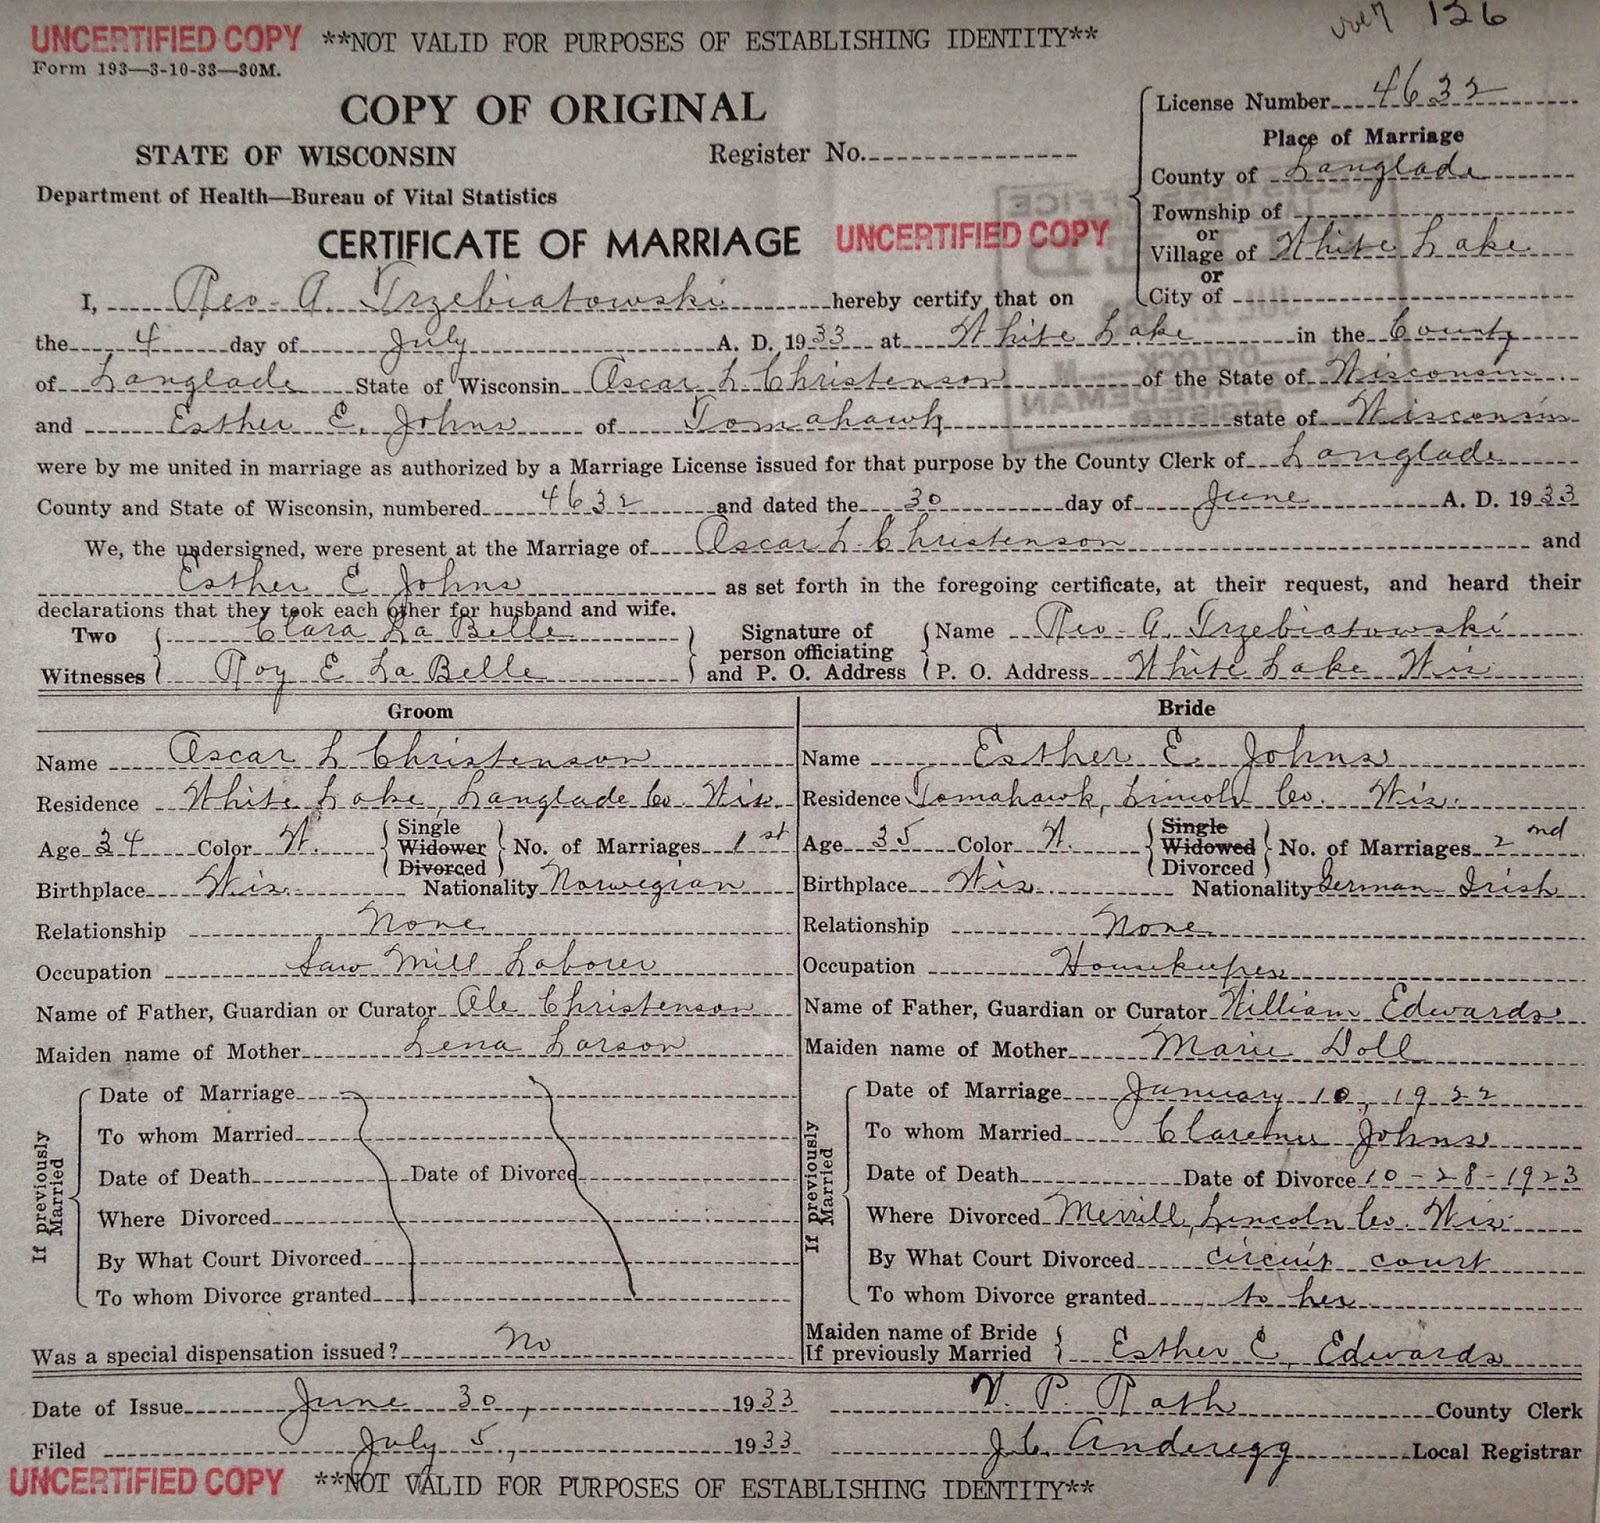 UNCERTIFIED COPY **NOT VALID FOR PURPOSES OF ESTABLISHING IDENTITY** 126
Form 193—3-10-33—30M.
COPY OF ORIGINAL
License Number 4632
STATE OF WISCONSIN Register No.
Place of Marriage
Department of Health—Bureau of Vital Statistics
County of Langlade
Township of
or
CERTIFICATE OF MARRIAGE UNCERTIFIED COPY
Village of White Lake
or
City of
I, Rev. A. Trzebiatowski hereby certify that on
the 4 day of July A. D. 1933 at White Lake in the County
of Langlade State of Wisconsin Oscar L Christenson of the State of Wisconsin
and Esther E. Johns of Tomahawk state of Wisconsin
were by me united in marriage as authorized by a Marriage License issued for that purpose by the County Clerk of Langlade
County and State of Wisconsin, numbered 4632 and dated the 30 day of June A. D. 1933
We, the undersigned, were present at the Marriage of Oscar L. Christenson and
Esther E Johns as set forth in the foregoing certificate, at their request, and heard their
declarations that they took each other for husband and wife.
Two Witnesses Clara La Belle
Roy E La Belle
Signature of person officiating and P. O. Address
Name Rev A. Trzebiatowski
P. O. Address White Lake Wis
Groom
Name Oscar L Christenson
Residence White Lake, Langlade Co. Wis.
Age 34 Color W. Single Widower Divorced No. of Marriages 1st
Birthplace Wis. Nationality Norwegian
Relationship None
Occupation Saw Mill Laborer
Name of Father, Guardian or Curator Ole Christenson
Maiden name of Mother Lena Larson
If previously Married
Date of Marriage
To whom Married
Date of Death Date of Divorce
Where Divorced
By What Court Divorced
To whom Divorce granted
Was a special dispensation issued? No
Bride
Name Esther E. Johns
Residence Tomahawk, Lincoln Co. Wis.
Age 35 Color W. Single Widowed Divorced No. of Marriages 2nd
Birthplace Wis. Nationality German-Irish
Relationship None
Occupation Housekeeper
Name of Father, Guardian or Curator William Edwards
Maiden name of Mother Marie Doll
If previously Married
Date of Marriage January 10, 1922
To whom Married Clarence Johns
Date of Death Date of Divorce 10-28-1923
Where Divorced Merrill, Lincoln Co. Wis.
By What Court Divorced circuit court
To whom Divorce granted to her
Maiden name of Bride If previously Married Esther E. Edwards
Date of Issue June 30, 1933 V. P. Rath County Clerk
Filed July 5, 1933 J. C. Anderegg Local Registrar
UNCERTIFIED COPY **NOT VALID FOR PURPOSES OF ESTABLISHING IDENTITY**